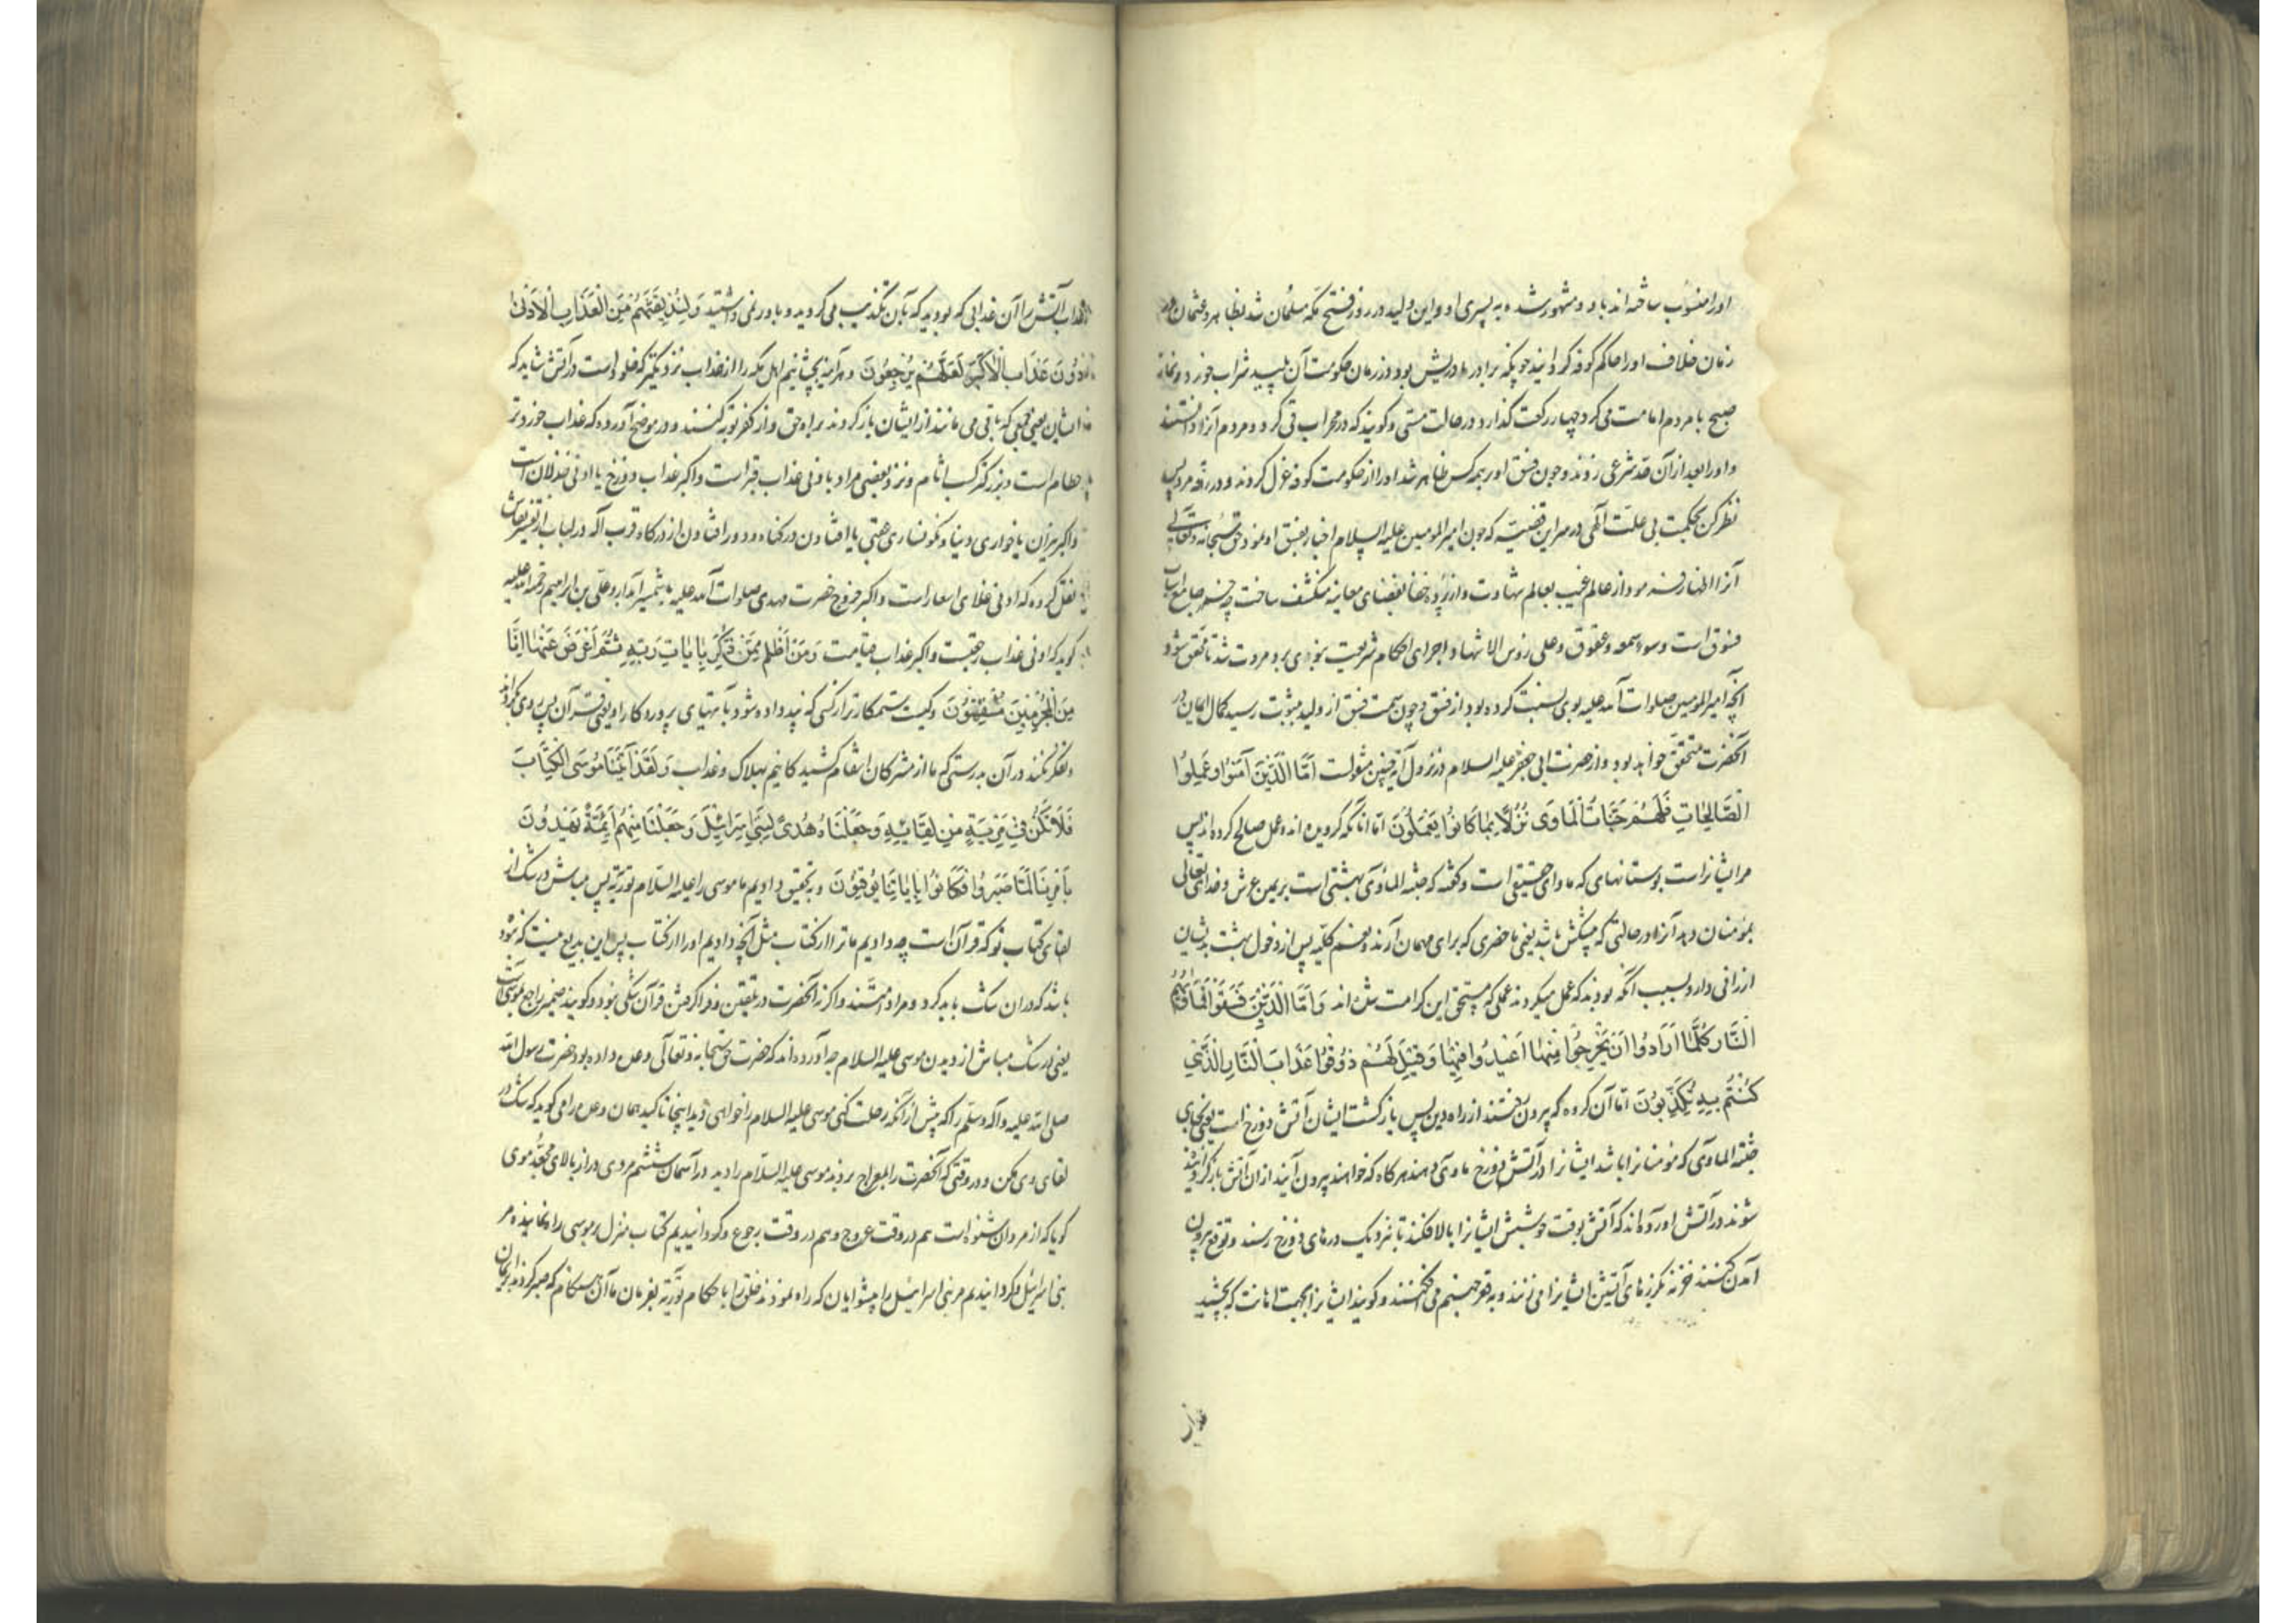 او را منسوب ساخته اند باو و مشهور شده به پسری او و این ولید در روز فتح مکه مسلمان شد بظاهر و عثمان در
زمان خلافت او را حاکم کوفه کردانید چونکه برادر مادریش بود و در زمان حکومت آن پلید شراب خورد و نماز
صبح با مردم امامت می کرد چهار رکعت کذارد در حالت مستی و کویند که در محراب قی کرد و مردم آنرا دانستند
و او را بعد از آن حد شرعی زدند و چون فسق او بر همه کس ظاهر شد او را از حکومت کوفه عزل کردند
نظر کن بحکمت بی علت آلهی در سر این قضیه که چون امیر المومنین علیه السلام اخبار بفسق او نمود حق سبحانه و تعالی
آنرا اظهار فرمود از عالم غیب بعالم شهادت و از پرده خفا بفضای معاینه منکشف ساخت چه خمر جامع اسباب
فسوق است و سوء سمعه و عقوق و علی رؤس الاشهاد اجرای احکام شریعت
آنچه امیر المومنین صلوات الله علیه بوی نسبت کرده بود از فسق و چون سمت فسق از ولید بثبوت رسید کمال ایمان در
آنحضرت متحقق خواهد بود و از حضرت ابی جعفر علیه السلام در نزول آیه چنین منقولست اَمَّا الَّذینَ آمَنُوا وَعَمِلُوا
الصَّالِحَاتِ فَلَهُمْ جَنَّاتُ الْمَاوَی نُزُلًا بِمَا کَانُوا یَعْمَلُونَ اما آنانکه کرویده اند و عمل صالح کرده اند پس
مر ایشانراست بوستانهایی که ماوای حقیقی است و کفته که جنة الماوی بهشتی است بر یمین عرش و خدای تعالی
بمؤمنان دهد آنرا در حالتی که پیشکش باشد یعنی ما حضری که برای مهمان آرند و نعیم کلیه پس از دخول بهشت بدیشان
ارزانی دارد بسبب آنکه بودند که عمل میکردند عملی که مستحق این کرامت شده اند وَاَمَّا الَّذینَ فَسَقُوا فَمَأْوَاهُمُ
النَّارُ کُلَّمَا اَرَادُوا اَنْ یَخْرُجُوا مِنْهَا اُعِیدُوا فِیهَا وَقِیلَ لَهُمْ ذُوقُوا عَذَابَ النَّارِ الَّذِی
کُنْتُمْ بِهِ تُکَذِّبُونَ اما آن کروه که بیرون رفتند از راه دین پس بازکشت ایشان آتش دوزخ است یعنی بجای
جنة الماوی که مؤمنانرا باشد ایشانرا در آتش دوزخ ماوی دهند هر کاه که خواهند بیرون آیند از آن آتش بازکردانیده
شوند در آتش آورده اند که آتش بوقت جوشش ایشانرا بالا افکند تا نزدیک درهای دوزخ رسند و توقع بیرون
آمدن کنند خزنه بکرزهای آتشین ایشانرا می زنند و به قعر جهنم می افکنند و کویند ایشانرا بجهت اهانت که بچشید
عذاب آتش را آن عذابی که بودید که بآن تکذیب می کردید و باور نمی داشتید وَلَنُذِیقَنَّهُمْ مِنَ الْعَذَابِ الْاَدْنَی
دُونَ عَذَابِ الْاَکْبَرِ لَعَلَّهُمْ یَرْجِعُونَ و هرآینه بچشانیم اهل مکه را از عذاب نزدیکتر که خلودست در آتش شاید که
ایشان یعنی جمعی که باقی می مانند از ایشان بازکردند براه حق و از کفر توبه کنند و در موضح آورده که عذاب خوردتر
حطام است و بزرکتر کسب اثام و نزد بعضی مراد بادنی عذاب قبر است و اکبر عذاب دوزخ یا ادنی خذلان است
و اکبر نیران یا خواری دنیا و نکونساری عقبی یا افتادن در کناه و دور افتادن از درکاه قرب اله در لباب از تفسیر نقاش
نقل کرده که ادنی غلای اسعار است و اکبر خروج حضرت مهدی صلوات الله علیه با شمشیر آبدار و علی بن ابراهیم رحمة الله علیه
کوید که ادنی عذاب رجعت و اکبر عذاب قیامت وَمَنْ اَظْلَمُ مِمَّنْ ذُکِّرَ بِآیَاتِ رَبِّهِ ثُمَّ اَعْرَضَ عَنْهَا اِنَّا
مِنَ الْمُجْرِمِینَ مُنْتَقِمُونَ و کیست ستمکارتر از کسی که پند داده شود بآیتهای پروردکار او یعنی قرآن پس روی بکرداند
و تفکر نکند در آن بدرستی که ما از مشرکان انتقام کشیده کانیم بهلاک و عذاب وَلَقَدْ آتَیْنَا مُوسَی الْکِتَابَ
فَلَا تَکُنْ فِی مِرْیَةٍ مِنْ لِقَائِهِ وَجَعَلْنَاهُ هُدًی لِبَنِی اِسْرَائِیلَ وَجَعَلْنَا مِنْهُمْ اَئِمَّةً یَهْدُونَ
بِاَمْرِنَا لَمَّا صَبَرُوا وَکَانُوا بِآیَاتِنَا یُوقِنُونَ و بتحقیق دادیم ما موسی را علیه السلام توریه پس مباش در شک از
لقای کتاب تو که قرآن است چه دادیم ما ترا از کتاب مثل آنچه دادیم او را از کتاب پس این بدیع نیست که نبوده
باشد که در آن شک باید کرد و مراد امتند و اکر نه آنحضرت در تلقین و فرا کرفتن قرآن شکی نبود و کویند ضمیر راجع بموسی است
یعنی در شک مباش از دیدن موسی علیه السلام چه آورده اند که حضرت حق سبحانه و تعالی وعده داده بود حضرت رسول الله
صلی الله علیه و آله وسلم را که پیش از آنکه رحلت کنی موسی علیه السلام را خواهی دید اینجا تاکید همان وعده را می کوید که شک در
لقای وی مکن و در وقتی که آنحضرت را بمعراج بردند موسی علیه السلام را دید در آسمان ششم مردی دراز بالای مجعد موی
کویا که از مردان شنوه است هم در وقت عروج و هم در وقت رجوع و کردانیدیم کتاب منزل بر موسی راه نماینده مر
بنی اسرائیل و کردانیدیم مر بنی اسرائیل را پیشوایان که راه نمودند خلق را با حکام توریه بفرمان ما آن هنکام که صبر کردند